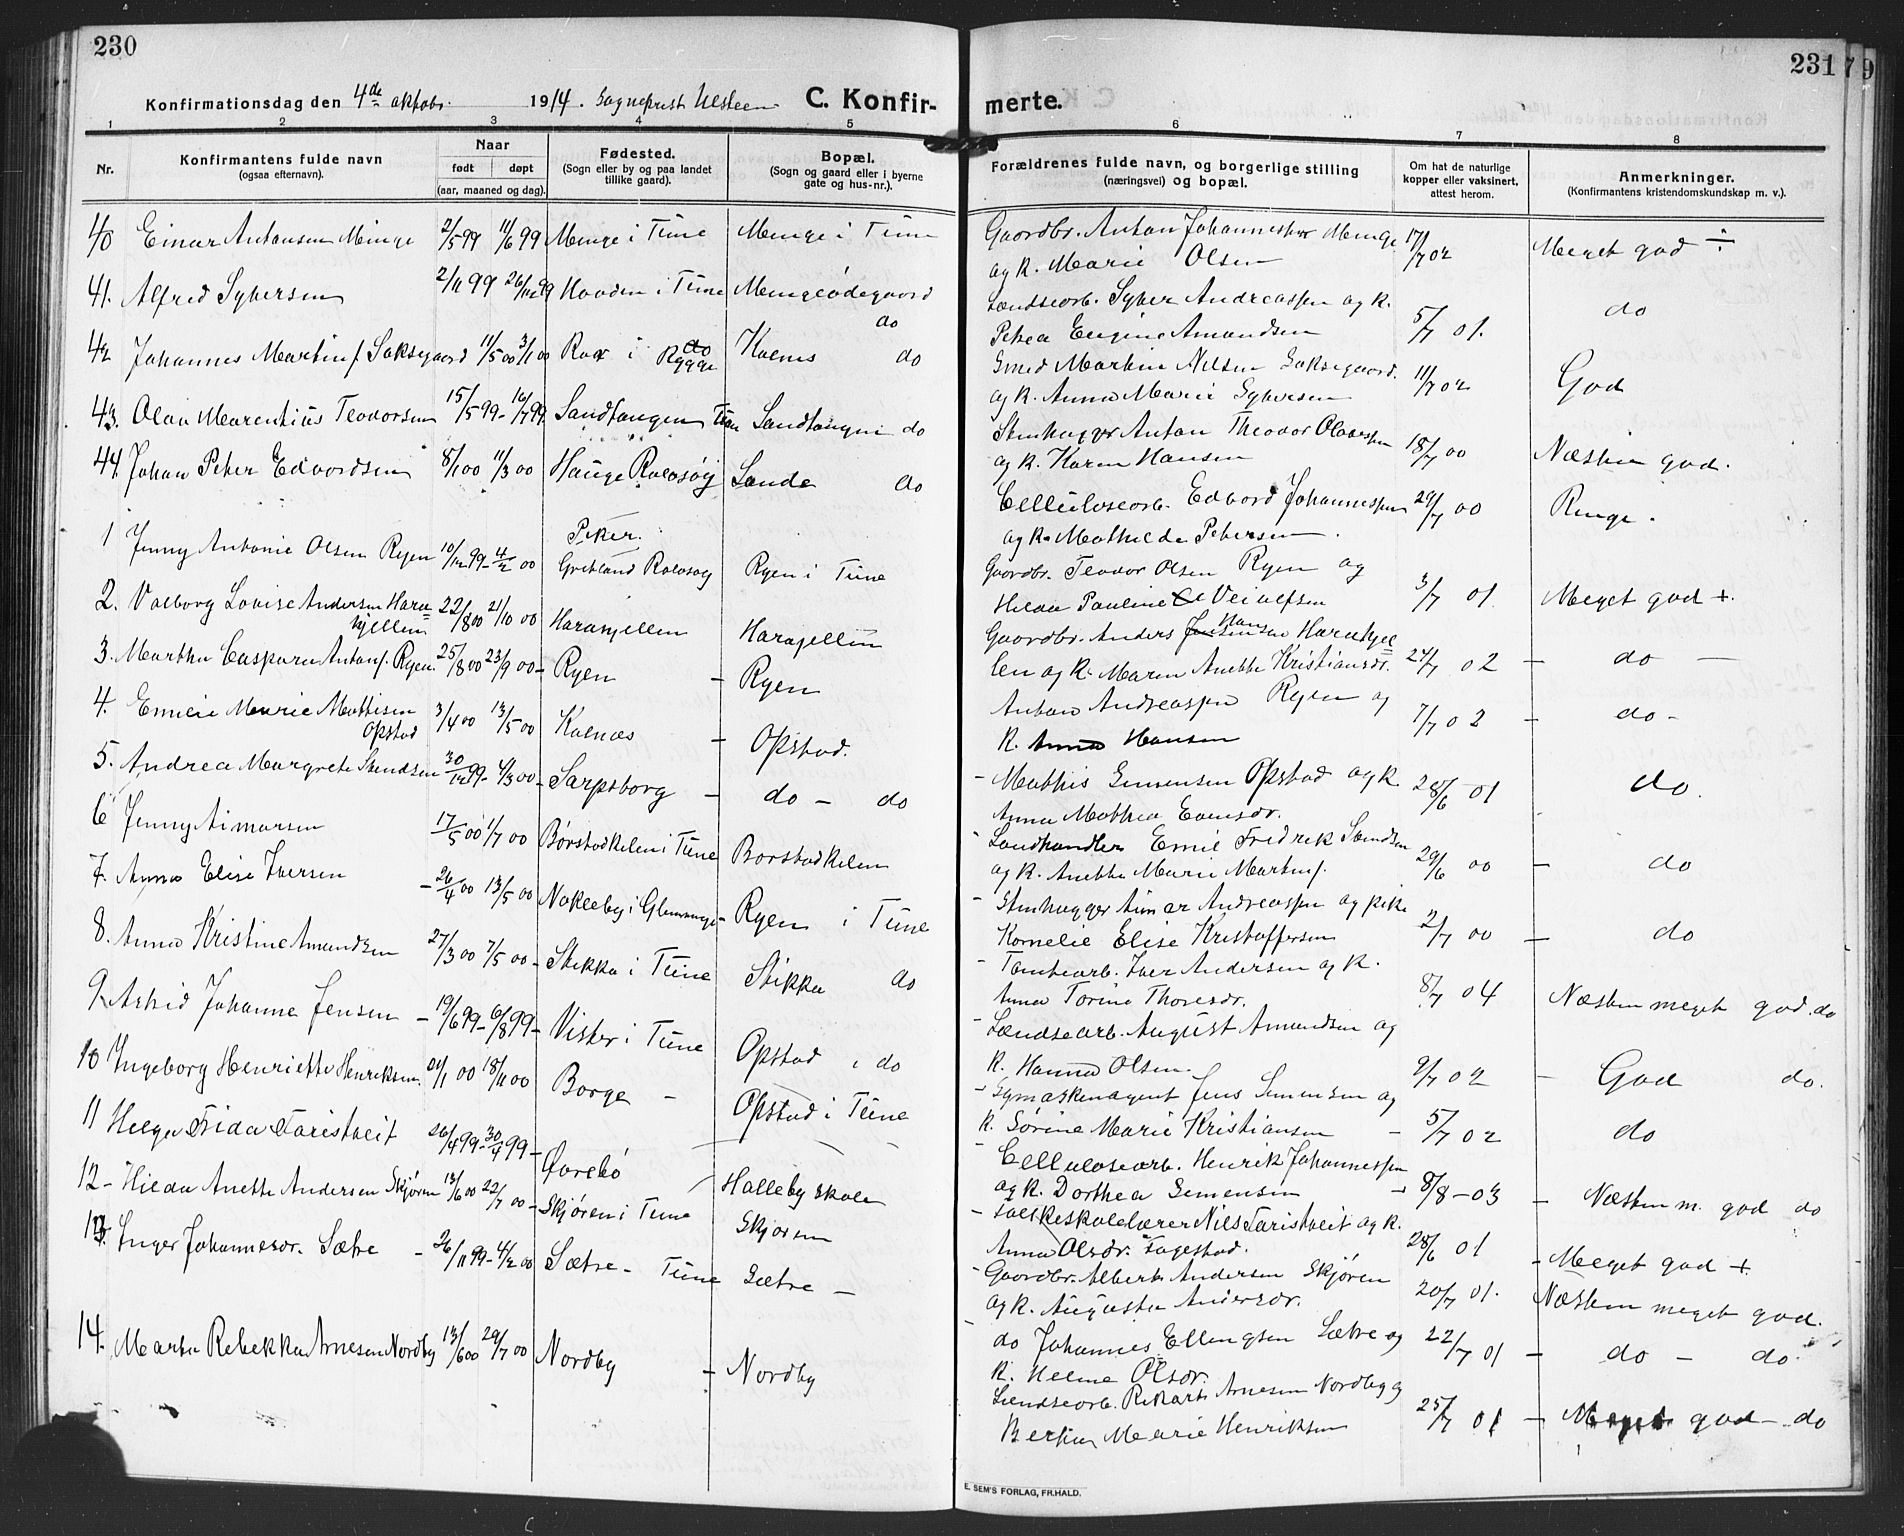 230
Konfirmationsdag den 4de oktobr. 1914. Sogneprest C. Konfir-
1 2 3 4 5
Nr.
Konfirmantens fulde navn
(ogsaa efternavn).
Naar
født døpt
(aar, maaned og dag).
Fødested.
(Sogn eller by og paa landet
tillike gaard).
Bopæl.
(Sogn og gaard eller i byerne
gate og hus-nr.).
40 Einar Antonsen Minge 2/5 99 11/6 99 Minge i Tune Minge i Tune
41. Alfred Syversen 2/11 99 26/12 99 i Tune Mingeødegaard
do
42 Johannes Martinf. Saksegaard 11/5 00 3/1 00 i Rygge do Kalnes do
43. Olav Marentius Teodorsen 15/5 99 - 16/7 99 Sandtangen Tune Sandtangen do
44. Johan Peter Edvardsen 8/1 00 11/3 00 Hauge Rolvsøy Sande do
1 Jenny Antonie Olsen Ryen 10/12 99 - 4/2 00 Rolvsøy Ryen i Tune
2. Valborg Lovise Andersen Hara=
kjellen 22/8 00 21/10 00 Harakjellen Harakjellen
3. Martha Caspara Antonf. Ryen. 25/8 00 23/9 00 - Ryen - Ryen
4. Emilie Marie Mattisen
Opstad 3/4 00 13/5 00 Kalnæs - Opstad.
5. Andrea Margrete 30/12 99 - 4/3 00 - Sarpsborg - do - do
6 Jenny Aimarsen 17/5 00 1/7 00 Børstadkilen i Tune Borstadkilen
7. Anna Elise Iversen - 26/4 00 13/5 00 Nokleby i Glemminge - Ryen i Tune
8. Anna Kristine Amundsen 27/3 00 7/5 00 - Stikka i Tune Stikka do
9. Astrid Johanne Jensen - 19/6 99 - 6/8 99 - Vister i Tune Opstad i do
10 Ingeborg Henriette Henriksen 21/1 00 18/11 00 Borge - Opstad i Tune
11 Helga Frida Taristveit 26/4 99 - 30/4 99 - Halleby skole
12 - Hilda Anette Andersen Skjøren 13/6 00 22/7 00 - Skjøren i Tune Skjøren
13. Inger Johannesdr. Sætre - 26/11 99 - 4/2 00 Sætre - Tune Sætre -
14. Marta Rebekka Arnesen Nordby 13/6 00 29/7 00 Nordby - Nordby
231
79
merte.
6 7 8
Forældrenes fulde navn, og borgerlige stilling
(næringsvei) og bopæl.
Om hat de naturlige
kopper eller vaksinert,
attest herom.
Anmerkninger.
(Konfirmantens kristendomskundskap m. v.).
Gaardbr. Anton Johannessen Minge 17/7 02 Meget god ÷
og k. Marie Olsen
Landsearb. Syver Andreassen og k. 5/7 01. do
Petra Eugine Amundsen
Smed Martin Nilsen Saksegaard. 11/7 02 God
og k. Anna Marie Syversen
Stenhugger Anton Theodor Olavessen 18/7 00 Næsten god.
og k. Karen Hansen
Cellulosearb. Edvard Johannessen 29/7 00 Ringe.
og k. Mathilde Petersen.
Gaardbr. Teodor Olsen Ryen og 3/7 01. Meget god +.
Hilda Pauline
Gaardbr. Anders Hansen Harakjel=
len og k. Maren Anette Kristiansdr. 24/7 02 - do -
Anton Andreassen Ryen og 7/7 02 - do -
k. Anna Hansen
- Mathis Simensen Opstad og k. 28/6 01 do.
Anna Mathea Evensdr.
- Landhandler Emil Fredrik 29/6 00 - do
og k. Anette Marie Martinf.
- Stenhugger Aimar Andreassen og pike 2/7 00 - do
Kornelie Elise Kristoffersen
- Tomtearb. Iver Andersen og k. 8/7 04 Næsten meget god. do
Anna Torine Thoresdr.
- Landsearb. August Amundsen og
k. Hanna Olsen. 9/7 02 - God do.
- Symaskinagent Jens Simensen og
k. Sørine Marie Kristiansen - 5/7 02 do
- Cellulosearb. Henrik Johannessen
og k. Dorthea Simensen - 8/8 - 03 - Næsten m. god do
- Folkeskolelærer Nils Taristveit og k.
Anna Olsdr. Fagestad. 28/6 01 - Meget god +.
- Gaardbr. Albert Andersen Skjøren
og k. Augusta Andersdr. 20/7 01. Næsten meget god.
- do Johannes Ellingsen Sætre og 22/7 01 - do - do.
k. Helme Olsdr.
Landsearb. Rikart Arnesen Nordby og 25/7 01 - Meget god - do
Berthe Marie Henriksen
E. SEM'S FORLAG, FR.HALD.